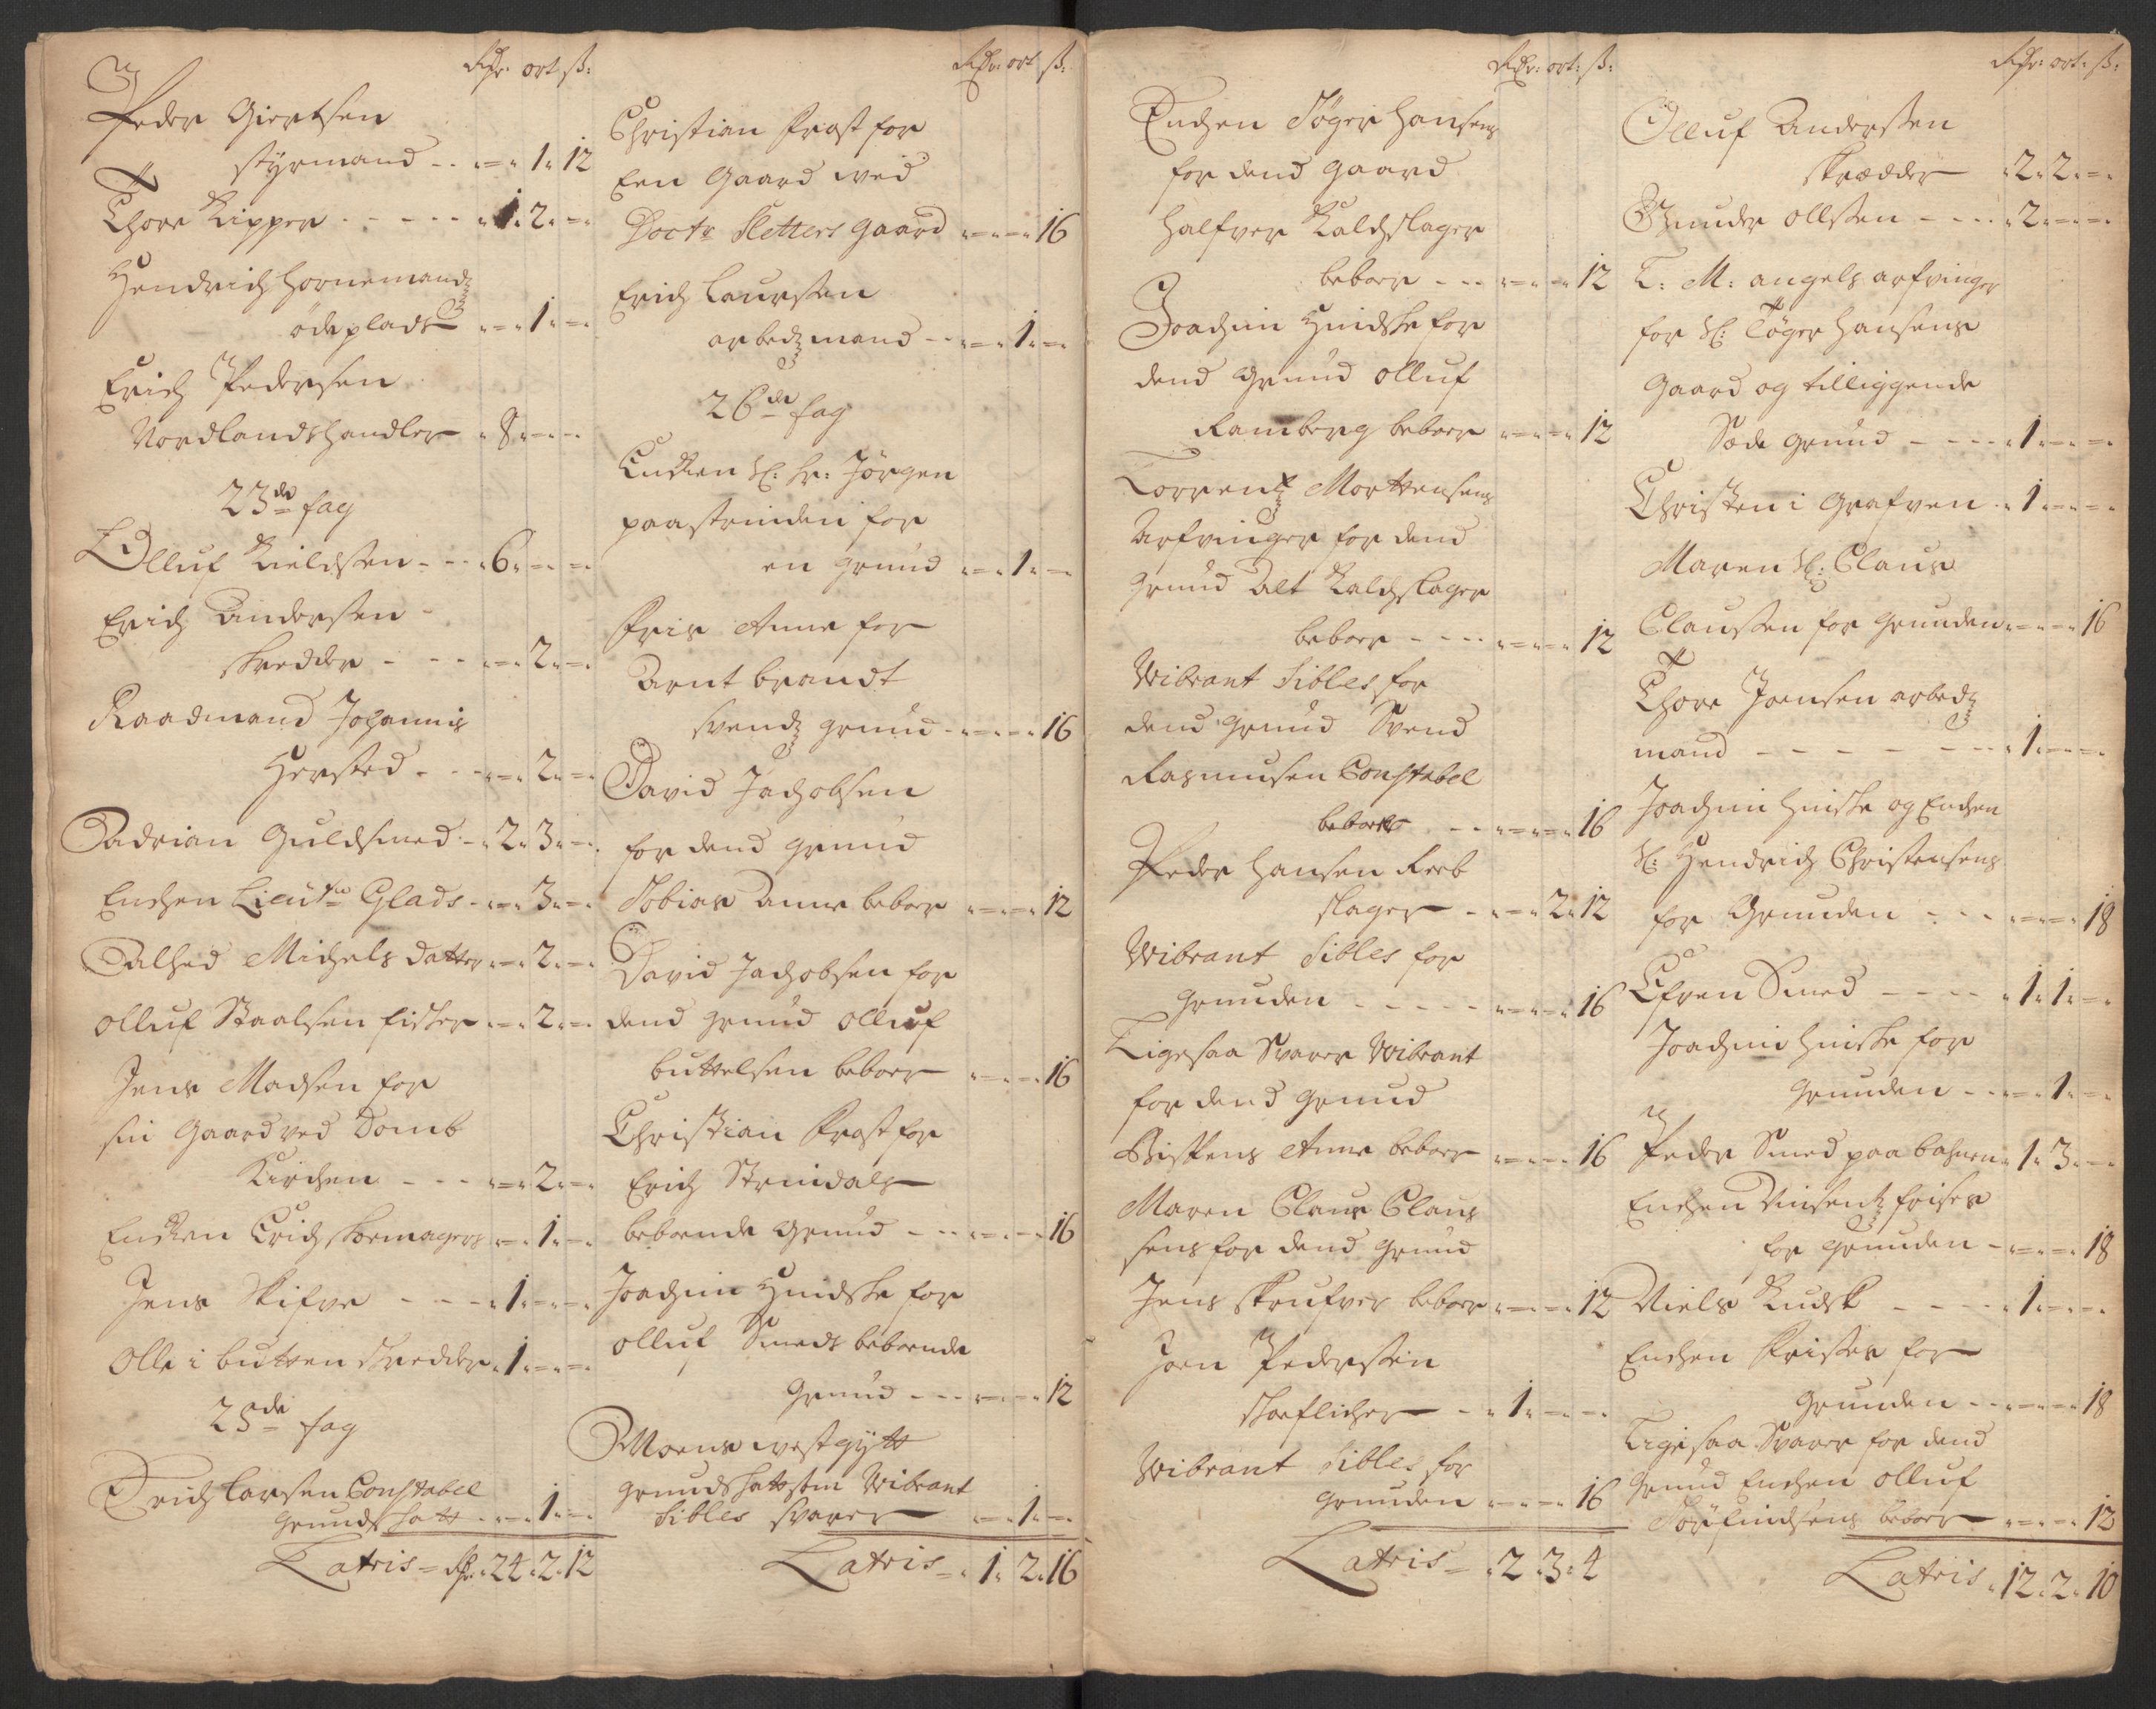 Rdr. ort. ß:
Peder Giertsen
styrmand - - „=„ 1„ 12
Thore Kipper - - - - „1„ 2„ =„
Hendrich Hornemands
öde plads „=„ 1„ =„
Erich Pedersen
Nordlandshandler „8„ =„ =„
23de fag
Olluf Kieldsen - - „6„ =„ =„
Erich Andersen
skredder - - - „=„ 2„ =„
Raadmand Johannis
Hersted - - „=„ 2„ =„
Adrian Guldsmed - „2„ 3„ =„
Enchen Lieutn Glads - „=„ 3„ =„
Alhed Michels datter „=„ 2„ =„
Olluf Staalsen fisker „=„ 2„ =„
Jens Madsen for
sin Gaard ved Domb
Kirchen - - - „=„ 2„ =„
Enchen Erich skoemagers „=„ 1„ =„
Jens Skifve - - - „1„ =„ =„
Olle i butten skredder „1„ =„ =„
25de fag
Erich Larsen Constabel
grundskatt „=„ 1„ =„
Latris = Rdr: 24„ 2„ 12
Rdr: ort ß:
Christian Frost for
Een Gaard wed
Doctr Sletters gaard „=„ =„ 16
Erich Laursen
arbedzmand - - „=„ 1„ =„
26de fag
Enchen Sl: Hr: Jörgen
paastrinden for
en grund „=„ 1„ =„
Friis Anne for
Arnt brandt
svendz grund - „=„ =„ 16
David Jachobsen
for dend grund
Tobias Anne beboer „=„ =„ 12
David Jachobsen for
dend grund Olluf
buttelsen beboer „=„ =„ 16
Christian Frost for
Erich Strindals
beboende grund - - „=„ =„ 16
Joachim Hindske for
Olluf Smeds beboende
grund - - - „=„ =„ 12
Moens westgytt
grundskatt som Wibrant
Sibles svarer „=„ 1„ =„
Latris = „1„ 2„ 16
Rdr: ort: ß:
Enchen Töger Hansens
for dend gaard
Halfver Kaldslager
beboer - - „=„ =„ 12
Joachim Hindske for
dend grund Olluf
Ramberg beboer „=„ =„ 12
Lorrentz Mortensens
Arfvinger for dend
grund Alt Kaldslager
beboer - - - „=„ =„ 12
Wibrant Sibles for
dend grund Svend
Rasmusen Constabel
beboer - - „=„ =„ 16
Peder Hansen Reeb
slager - „=„ 2„ 12
Wibrant Sibles for
grunden - - - - - „=„ =„ 16
Ligesaa Svarer Wibrant
for dend grund
Bispens Anne beboer „=„ =„ 16
Maren Claus Claus
sens for dend grund
Jens skrufver beboer „=„ =„ 12
Joen Pedersen
skoeflicher - - „1„ =„ =„
Wibrant Sibles for
grunden „=„ =„ 16
Latris = „2„ 3„ 4
Rdr: ort: ß:
Olluf Andersen
skrædder „2„ 2„ =„
Gunder Ollsen - - - „2„ =„ =„
T: M: angels arfvinger
for Sl: Töger Hansens
Gaard og tilliggende
Söe grund - - - „1„ =„ =„
Christen i Grafven - „1„ =„ =„
Maren Sl: Claus
Claussen for grunden „=„ =„ 16
Thore Joensen arbedz
mand - - - - - - - „1„ =„ =„
Joachim Hinske og Enchen
Sl: Hendrich Christensens
for Grunden - - - „=„ =„ 18
Efren Smed - - - - „1„ 1„ =„
Joachim Hinske for
grunden - - „=„ 1„ =„
Peder Smed paa bahnen „1„ 3„ =„
Enchen Vinsentz friser
for grunden - „=„ =„ 18
Niels Kudsk - - - - „1„ =„ =„
Enchen Friser for
grunden - - „=„ =„ 18
Ligesaa Svarer for dend
grund Enchen Olluf
beboer - „=„ =„ 12
Latris „12„ 2„ 10